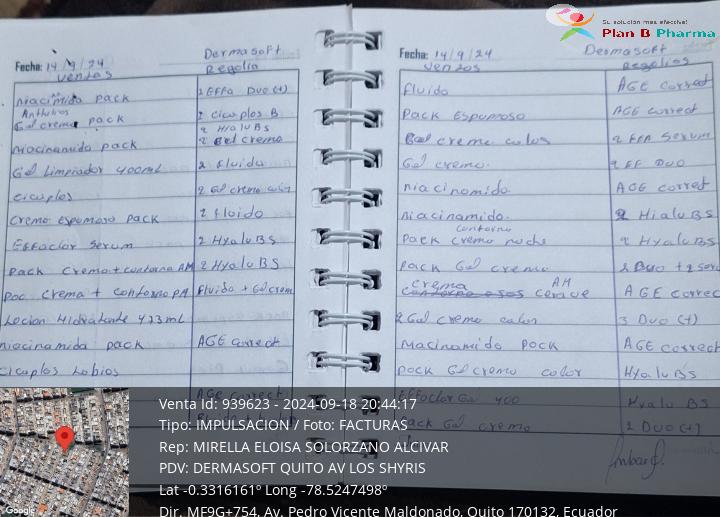 Su solución más efectiva!
Plan B Pharma
Fecha: 14/9/24
Dermasoft
Ventas
Regalia
Niacimida pack
2 EFFA DUO (+)
Anthelios
Gel crema pack
2 Cicaplos B
2 HialuBS
Niacinamida pack
2 Gel crema
Gel Limpiador 400ml
2 Fluido
Cicaplos
2 Gel crema color
Crema espumosa pack
2 Fluido
Effaclor serum
2 HyaluBS
Pack Crema + contorno AM
2 HyaluBS
Crema + contorno PM
Fluido + Gel crem
Locion Hidratante 473ml
Niacinamida pack
AGE correct
Cicaplos Labios
AGE correct
Fecha: 14/9/24
Dermasoft
Ventas
Regalias
Fluido
AGE correct
Pack Espumoso
AGE correct
Gel crema color
2 EFA Serum
Gel crema.
2 EF DUO
Niacinamida
AGE correct
Niacinamida.
2 HialuBS
contorno
Pack crema noche
2 HyaluBS
Pack Gel crema
Crema AM
AGE correc
2 Gel crema color
3 Duo (+)
Niacinamida Pack
AGE correct
Pack Gel crema color
Hyalu BS
Effaclor Gel 400
Hyalu BS
Pack Gel crema
2 DUO (+)
Venta Id: 939623 - 2024-09-18 20:44:17
Tipo: IMPULSACION / Foto: FACTURAS
Rep: MIRELLA ELOISA SOLORZANO ALCIVAR
PDV: DERMASOFT QUITO AV LOS SHYRIS
Lat -0.3316161º Long -78.5247498º
Dir. MF9G+754, Av. Pedro Vicente Maldonado, Quito 170132, Ecuador
Google